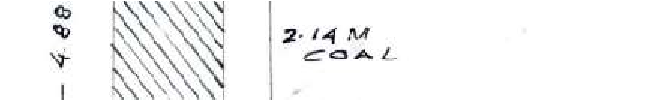 4.88
2.14 M
COAL